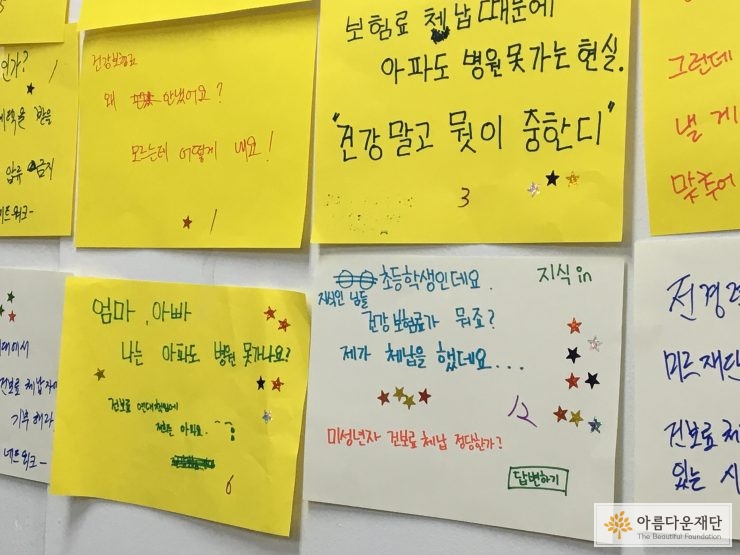 인가?
1
받을
압류 금지
네트워크-
건강보험료
왜 안냈어요?
모르는데 어떻게 내요!
1
보험료 체납때문에
아파도 병원못가는 현실.
"건강말고 뭣이 중한디"
3
그런데
낼 게
맞추어
건보료 체납자
기부해라
네트워크-
엄마, 아빠
나는 아파도 병원 못가나요?
건보료 연대책임에
저는 아파요..
6
초등학생인데요.
지식in
지식인 님들
건강보험료가 뭐죠?
제가 체납을 했데요...
12
미성년자 건보료 체납 정당한가?
답변하기
전경련
미르재단
건보료 체
있는 시
아름다운재단
The Beautiful Foundation